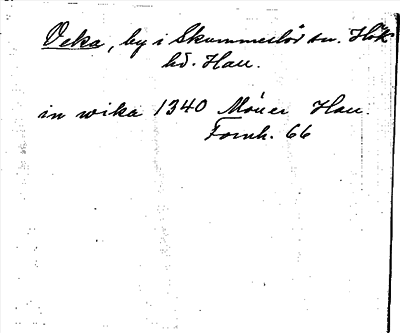 Veka, by i Skummeslöv sn. Hök
hd. Hall.
in wika 1340 Möller Hall.
Fornh. 66